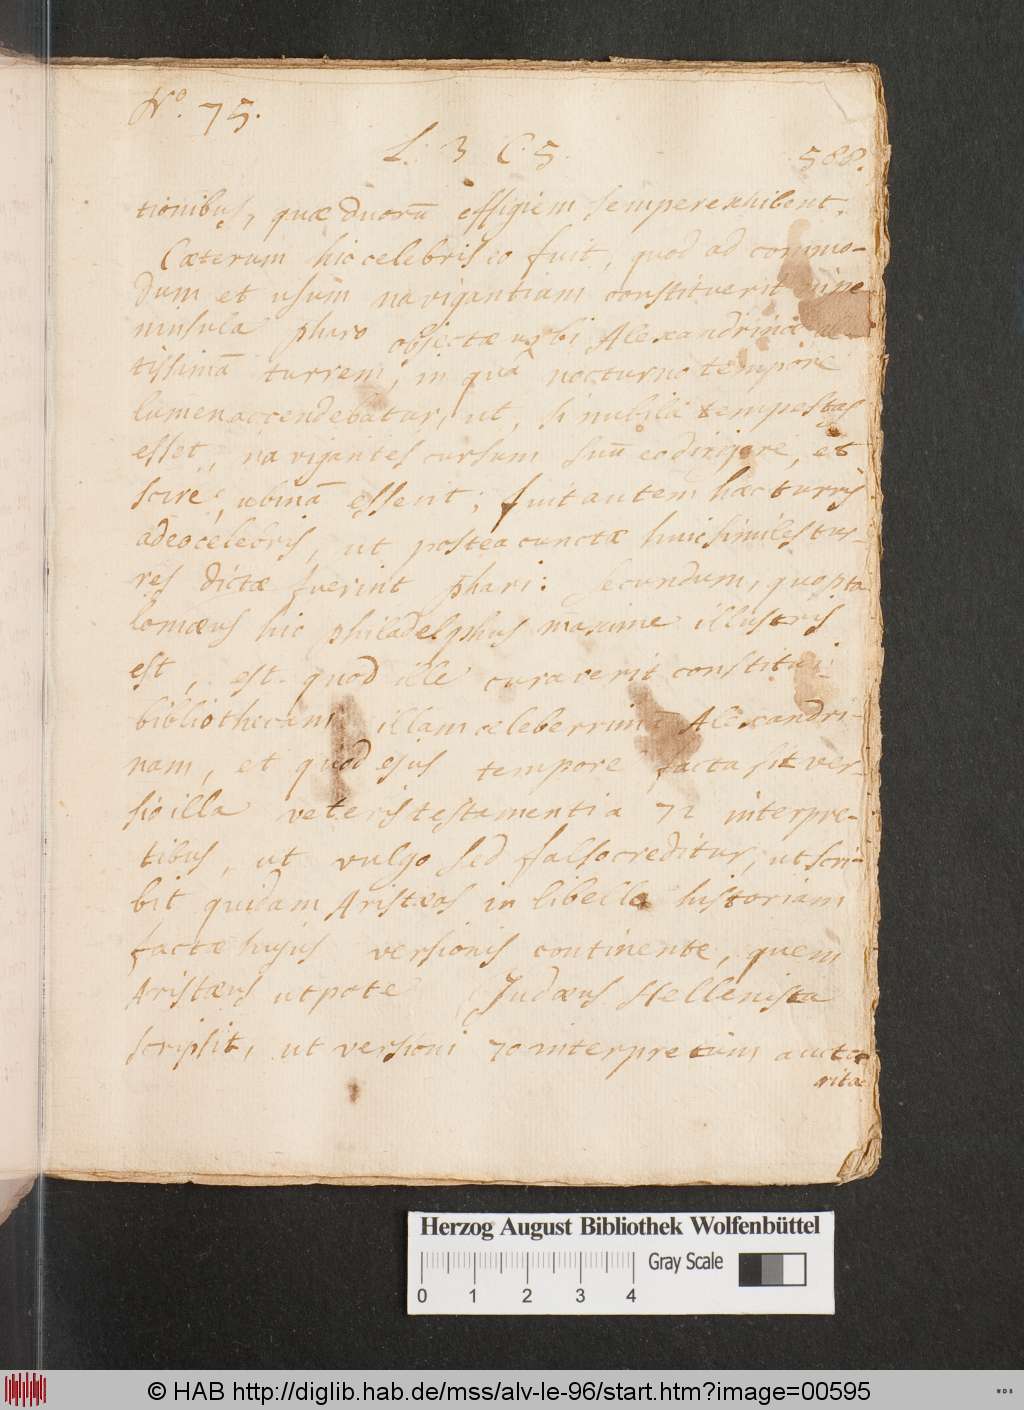 No. 75.
L. 3 C. 5.
588.
tionibus, quæ duorū effigiem semper exhibent.
Cæterum hic celebris eo fuit, quod ad commo-
dum et usum navigantium constituerit in pe
ninsula pharo objectæ urbi Alexandrinæ al-
tissimā turrem, in quâ nocturno tempore
lumen accendebatur, ut, si nubila tempestas
esset, navigantes cursum suū eo dirigere, et
scire, ubinā essent; fuit autem hæc turris
adeo celebris, ut postea cunctæ huic similes tur-
res dictæ fuerint phari: secundum, quo pto
lomæus hic philadelphus maxime illustris
est, est quod ille curaverit constitui
bibliothecam illam celeberrimā Alexandri-
nam, et quod ejus tempore facta sit ver-
sio illa veteris testamenti a 72 interpre-
tibus, ut vulgo sed falso creditur, ut scri-
bit quidam Aristæas in libello historiam
factæ hujus versionis continente, quem
Aristæus utpote Judæus Hellenista
scripsit, ut versioni 70 interpretum aucto
rita
Herzog August Bibliothek Wolfenbüttel
Gray Scale
0 1 2 3 4
© HAB http://diglib.hab.de/mss/alv-le-96/start.htm?image=00595